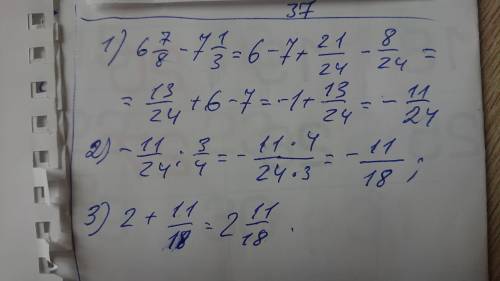 37
1) 6 7/8 - 7 1/3 = 6 - 7 + 21/24 - 8/24 =
= 13/24 + 6 - 7 = -1 + 13/24 = - 11/24
2) - 11/24 : 3/4 = - 11·4/24·3 = - 11/18;
3) 2 + 11/18 = 2 11/18.